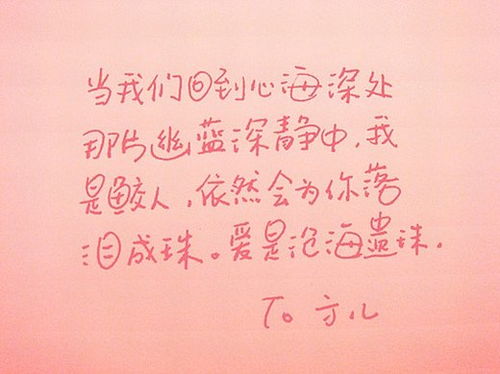 当我们回到心海深处
那片幽蓝深静中，我
是鲛人，依然会为你落
泪成珠。爱是沧海遗珠．
To 方儿